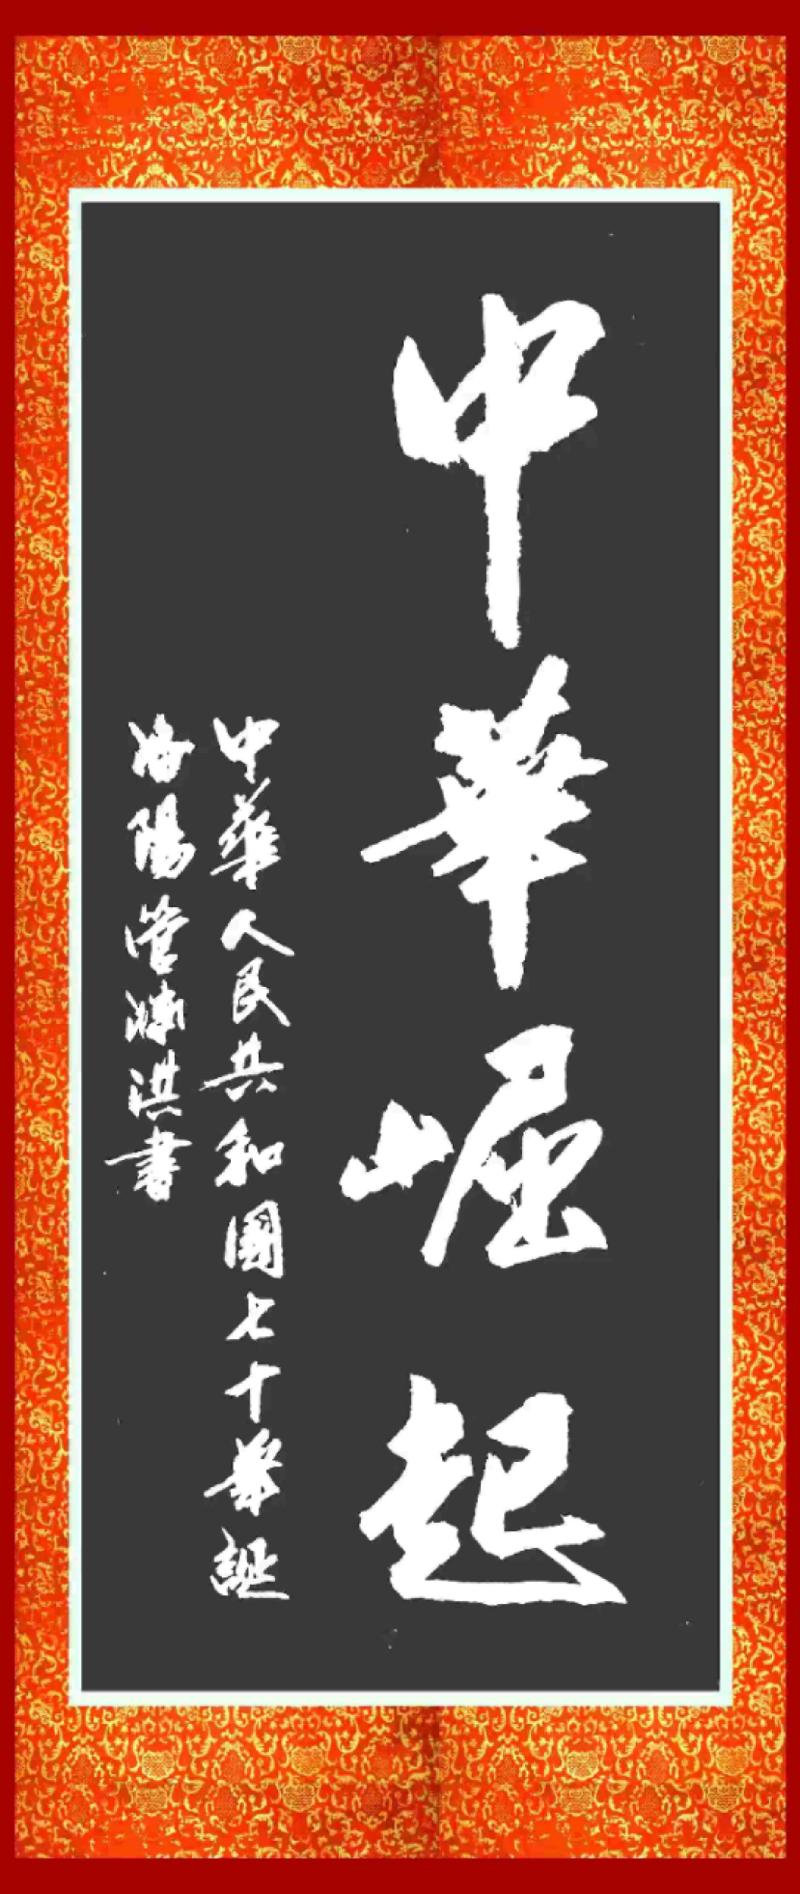 中華崛起
中華人民共和國七十華誕
洛陽管洪書